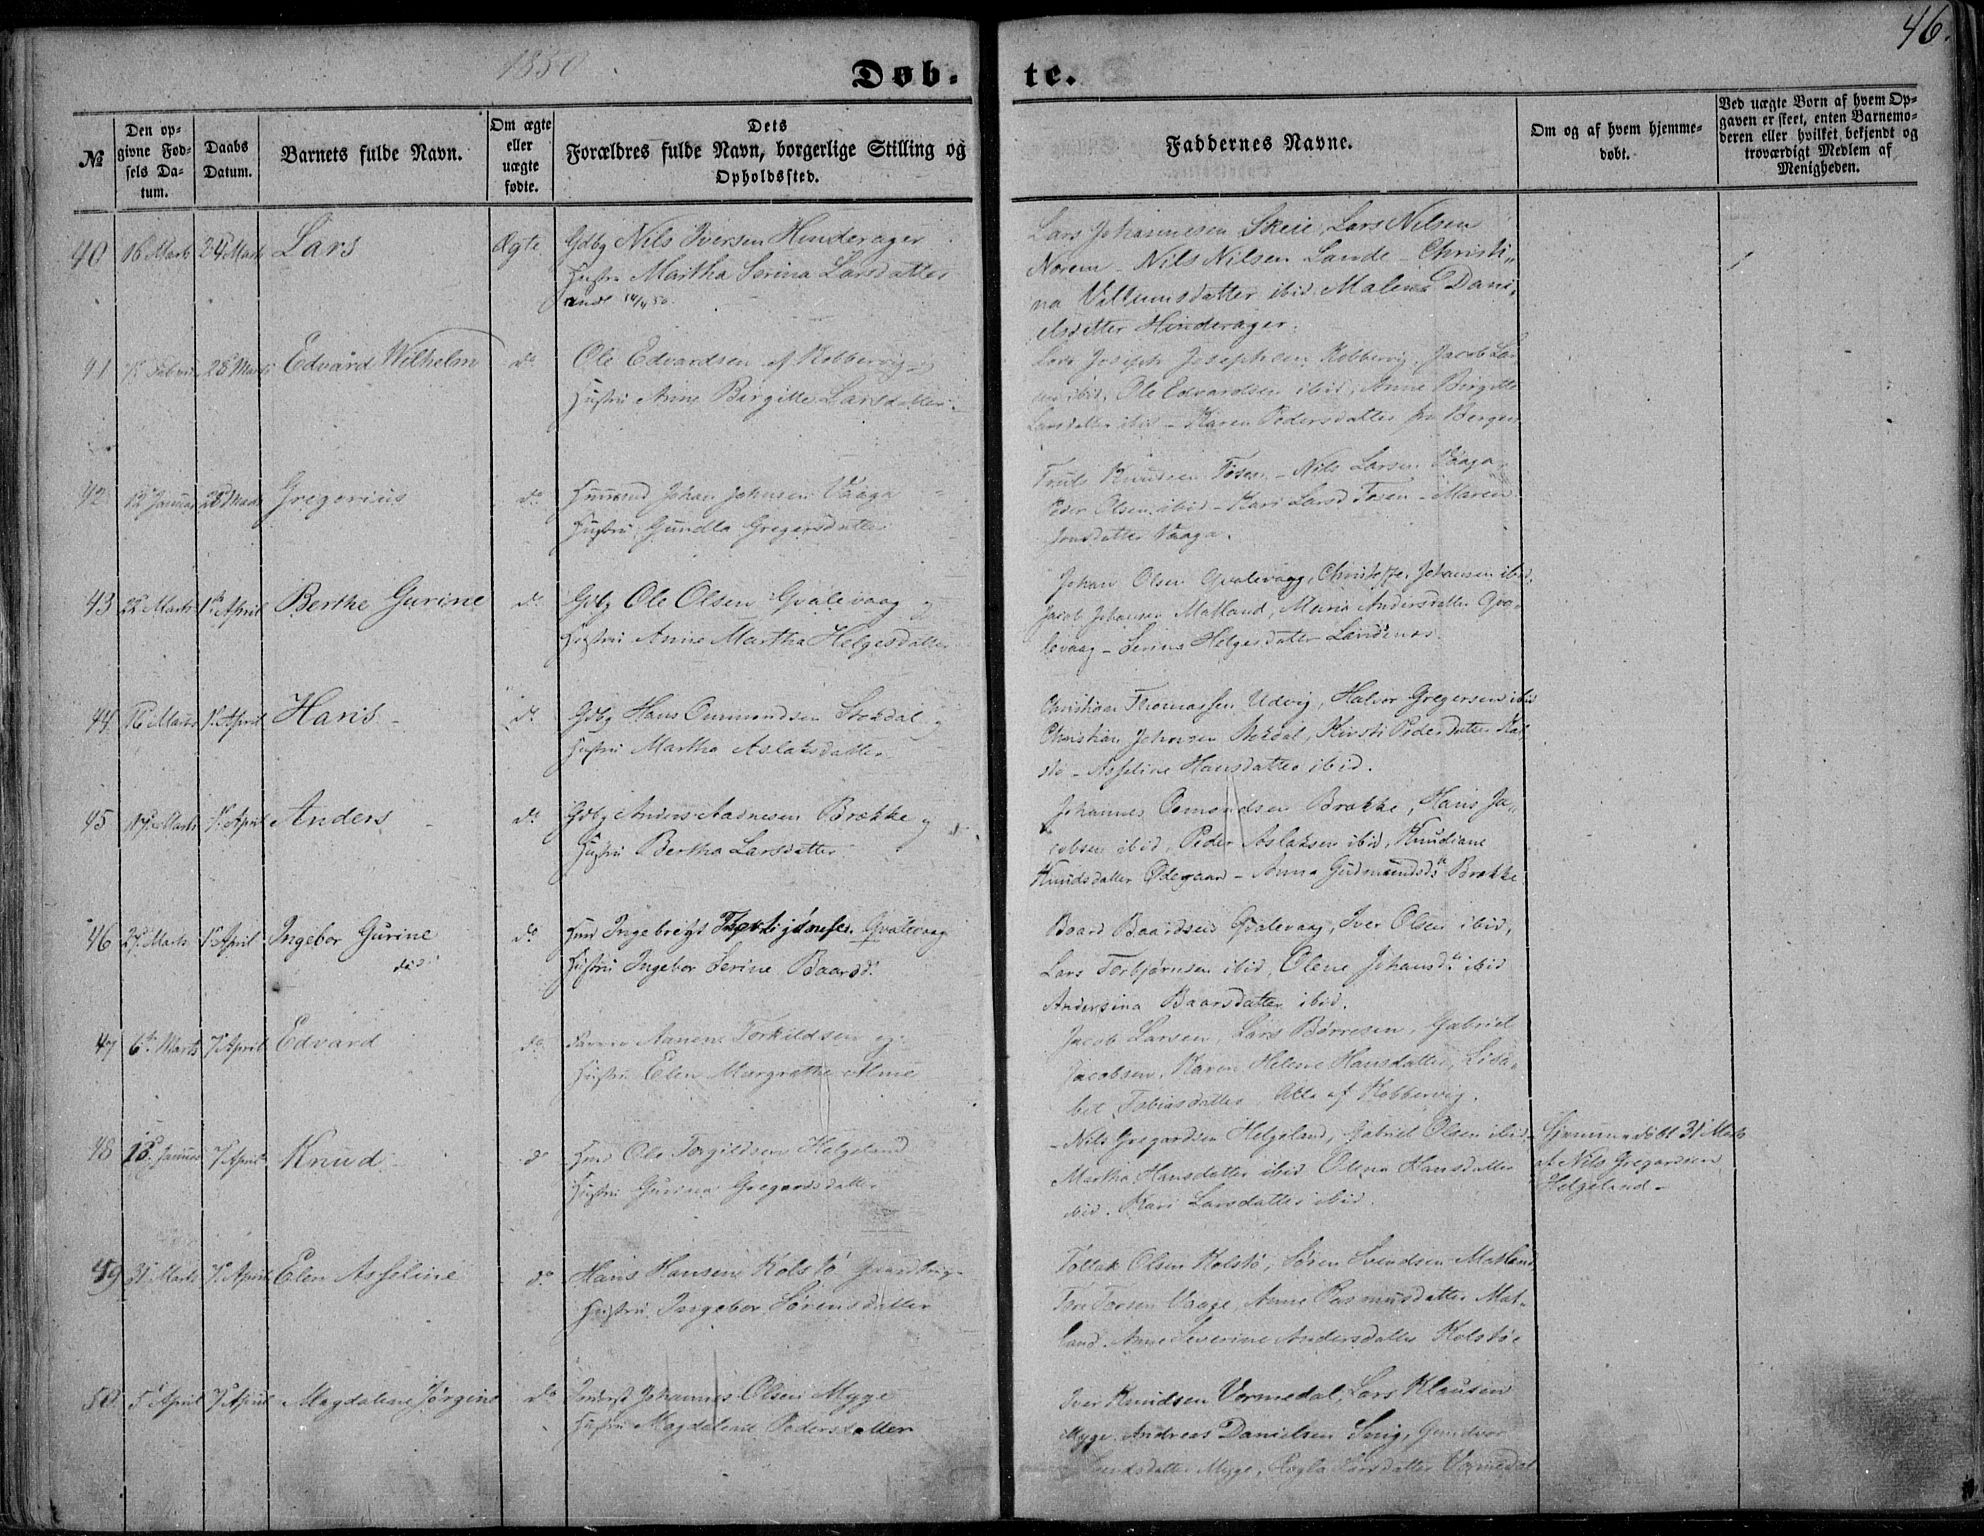 1850
46.
Døb. te.
№
Den op-
givne Fød-
sels Da-
tum.
Daabs
Datum.
Barnets fulde Navn.
Om ægte
eller
uægte
fødte.
Dets
Forældres fulde Navn, borgerlige Stilling og
Opholdssted.
Faddernes Navne.
Om og af hvem hjemme-
døbt.
Ved uægte Børn af hvem Op-
gaven er skeet, enten Barnemo-
deren eller hvilket bekjendt og
troværdigt Medlem af
Menigheden.
40 16 Marts 24 Marts Lars Ægte Gdbg Nils Iversen Hinderager
Hustru Martha Serina Larsdatter
Lars Johannesen Skeie, Lars Nilsen
Norem - Nils Nilsen Lande - Christi,,
na Villumsdatter ibid. Malena Dani,
elsdatter Hinderager.
41 28 Marts Edvard Wilhelm do Ole Edvardsen af Kobbervig
Hustru Anne Birgitte Larsdatter
Joseph Josephsen Kobbervig, Jacob Lar
sen ibid, Ole Edvardsen ibid, Anne Birgitte
Larsdatter ibid - Karen Pedersdatter fra Bergen
42 12 Januar 28 Marts Gregorius do Huusmd Johan Johnsen Vaaga
Hustru Gundla Gregersdatter
Truls Knudsen Tosen - Nils Larsen Vaaga,
Peder Olsen ibid - Kari Larsd Tosen - Maren
Jonsdatter Vaaga.
43 Marts 1 April Berthe Gurine do Gdbg Ole Olsen Gvalevaag og
Hustru Anne Martha Helgesdatter
Johan Olsen Qvalevaag, Christoffer Johansen ibid,
Jacob Johansen Matland, Maria Andersdatter Qva,
levaag - Serina Helgesdatter Landenes
44 16 Marts 1 April Hans do Gdbg Hans Ommondsen Stokdal og
Hustru Martha Aslaksdatter
Christian Thomassen Udvig, Halvor Gregersen ibid
Christian Johnsen Stokdal, Kirsti Pedersdatter Kol
stø - Asseline Hansdatter ibid.
45 17 Marts 1 April Anders do Gdbg Anders Aadnesen Brække og
Hustru Bertha Larsdatter
Johannes Osmondsen Brække, Hans Ja,,
cobsen ibid, Peder Aslaksen ibid, Knudiane
Knudsdatter Ødegaard - Anna Gudmundsdr Brække
46 Marts 1 April Ingebor Gurine
død
do Huusmd Ingebregt Thorbjørnsen Qvalevaag
Hustru Ingebor Serine Baarsd.
Baard Baardsen Qvalevaag, Iver Olsen ibid,
Lars Torbjørnsen ibid, Olene Johansdr ibid
Andersina Baarsdatter ibid.
47 6 Marts 7 April Edvard do Aanen Torkildsen og
Hustru Elen Margrethe Alme
Jacob Larsen, Lars Børresen, Gabriel
Jacobsen, Karen Helene Hansdatter, Lisa,
bet Tobiasdatter Alle af Kobbervig.
48 18 Januar 7 April Knud do Huusmd Ole Torgildsen Helgeland
Hustru Gurina Gregardsdatter
Nils Gregardsen Helgeland, Gabriel Olsen ibid
Martha Hansdatter ibid Olena Hansdatter
ibid. Kari Larsdatter ibid.
Hjemmedøbt 31 Marts
af Nils Gregardsen
Helgeland -
49 31 Marts 7 April Elen Asseline do Hans Hansen Kolstø Gaardbrug-
Hustru Ingebor Sørensdatter
Tollak Olsen Kolstø, Søren Svendsen Matland
Tore Torsen Vaage, Anne Rasmusdatter Mat-
land. Anne Severine Andersdatter Kolstø
50 5 April 7 April Magdalene Jørgine do Inderst Johannes Olsen Myge
Hustru Magdelene Pedersdatter
Iver Knudsen Vormedal, Lars Klausen
Myge, Andreas Danielsen Snig, Gundvor
Myge, Larsdatter Vormedal